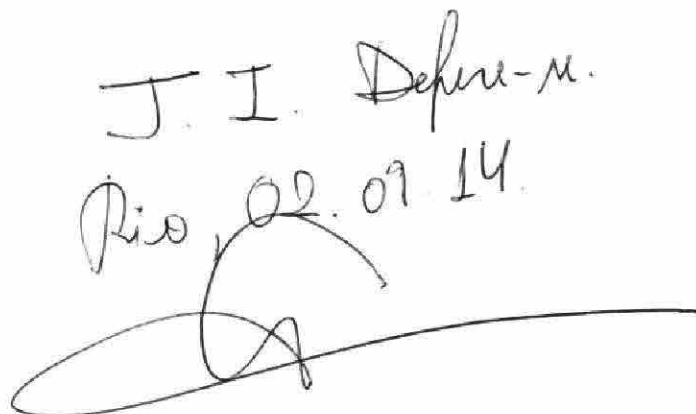 J. I. Defiro-se.
Rio, 02.09.14.